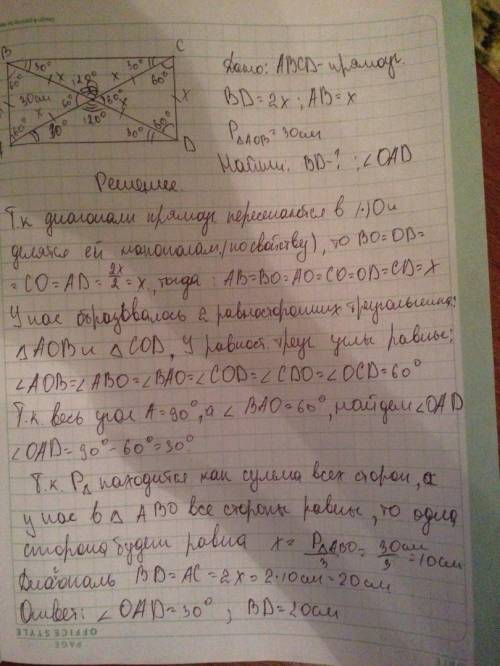 B C
30° 120° 30°
60° x x 60°
30см 60° 60° x
60° 120° 60°
30° 30°
D
Дано: ABCD - прямоуг.
BD = 2x ; AB = x
P△AOB = 30см
Найти: BD-? ; ∠OAD
Решение.
Т.к диагонали прямоуг пересекаются в (·)O и
делятся ей пополам (по свойству), то BO=OD=
=CO=AD= 2x/2 = x, тогда: AB=BO=AO=CO=OD=CD=x
У нас образовалось 2 равносторонних треугольника:
△AOB и △COD, У равност. треуг углы равны:
∠AOB=∠ABO=∠BAO=∠COD=∠CDO=∠OCD=60°
Т.к. весь угол A=90°, а ∠BAO=60°, найдем ∠OAD
∠OAD=90°-60°=30°
Т.к. P△ находится как сумма всех сторон, а
у нас в △ ABO все стороны равны, то одна
сторона будет равна x= P△ABO/3 = 30см/3 =10см
Диагональ BD=AC=2x=2·10см=20см
Ответ: ∠OAD=30° ; BD=20см
PAGE
OFFICE STYLE